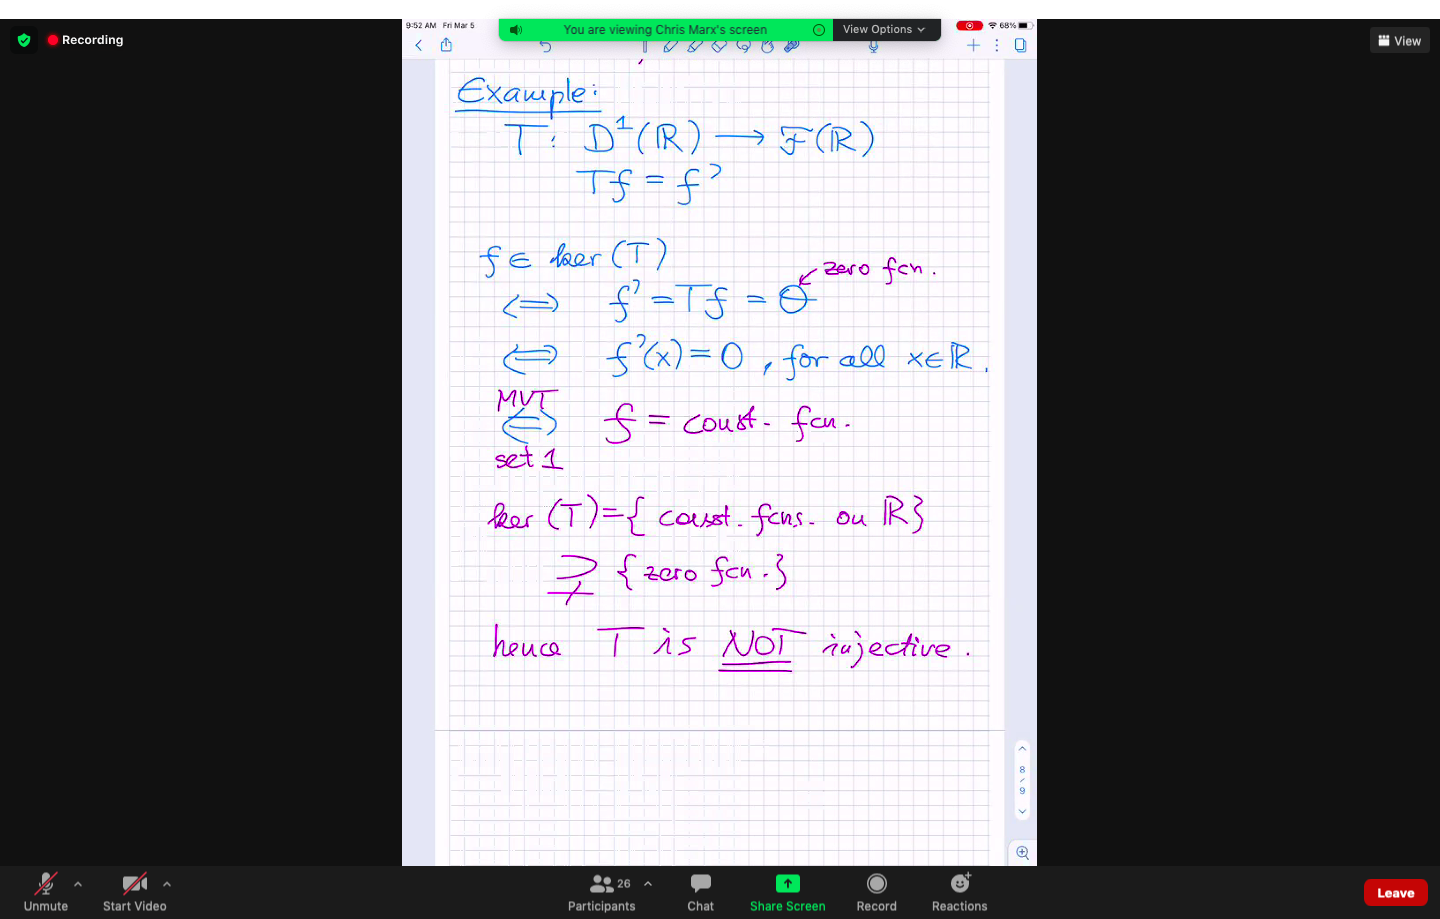 9:52 AM Fri Mar 5
You are viewing Chris Marx's screen
View Options
68%
Recording
View
Example:
T: D¹(ℝ) ⟶ ℱ(ℝ)
Tf = f'
f ∈ ker (T)
zero fcn.
⟺ f' = Tf = Θ
⟺ f'(x) = 0, for all x∈ℝ.
MVT
⟺ f = const. fcn.
set 1
ker (T) = { const. fcns. on ℝ}
⊋ { zero fcn. }
hence T is NOT injective.
8
/
9
Unmute
Start Video
26
Participants
Chat
Share Screen
Record
Reactions
Leave